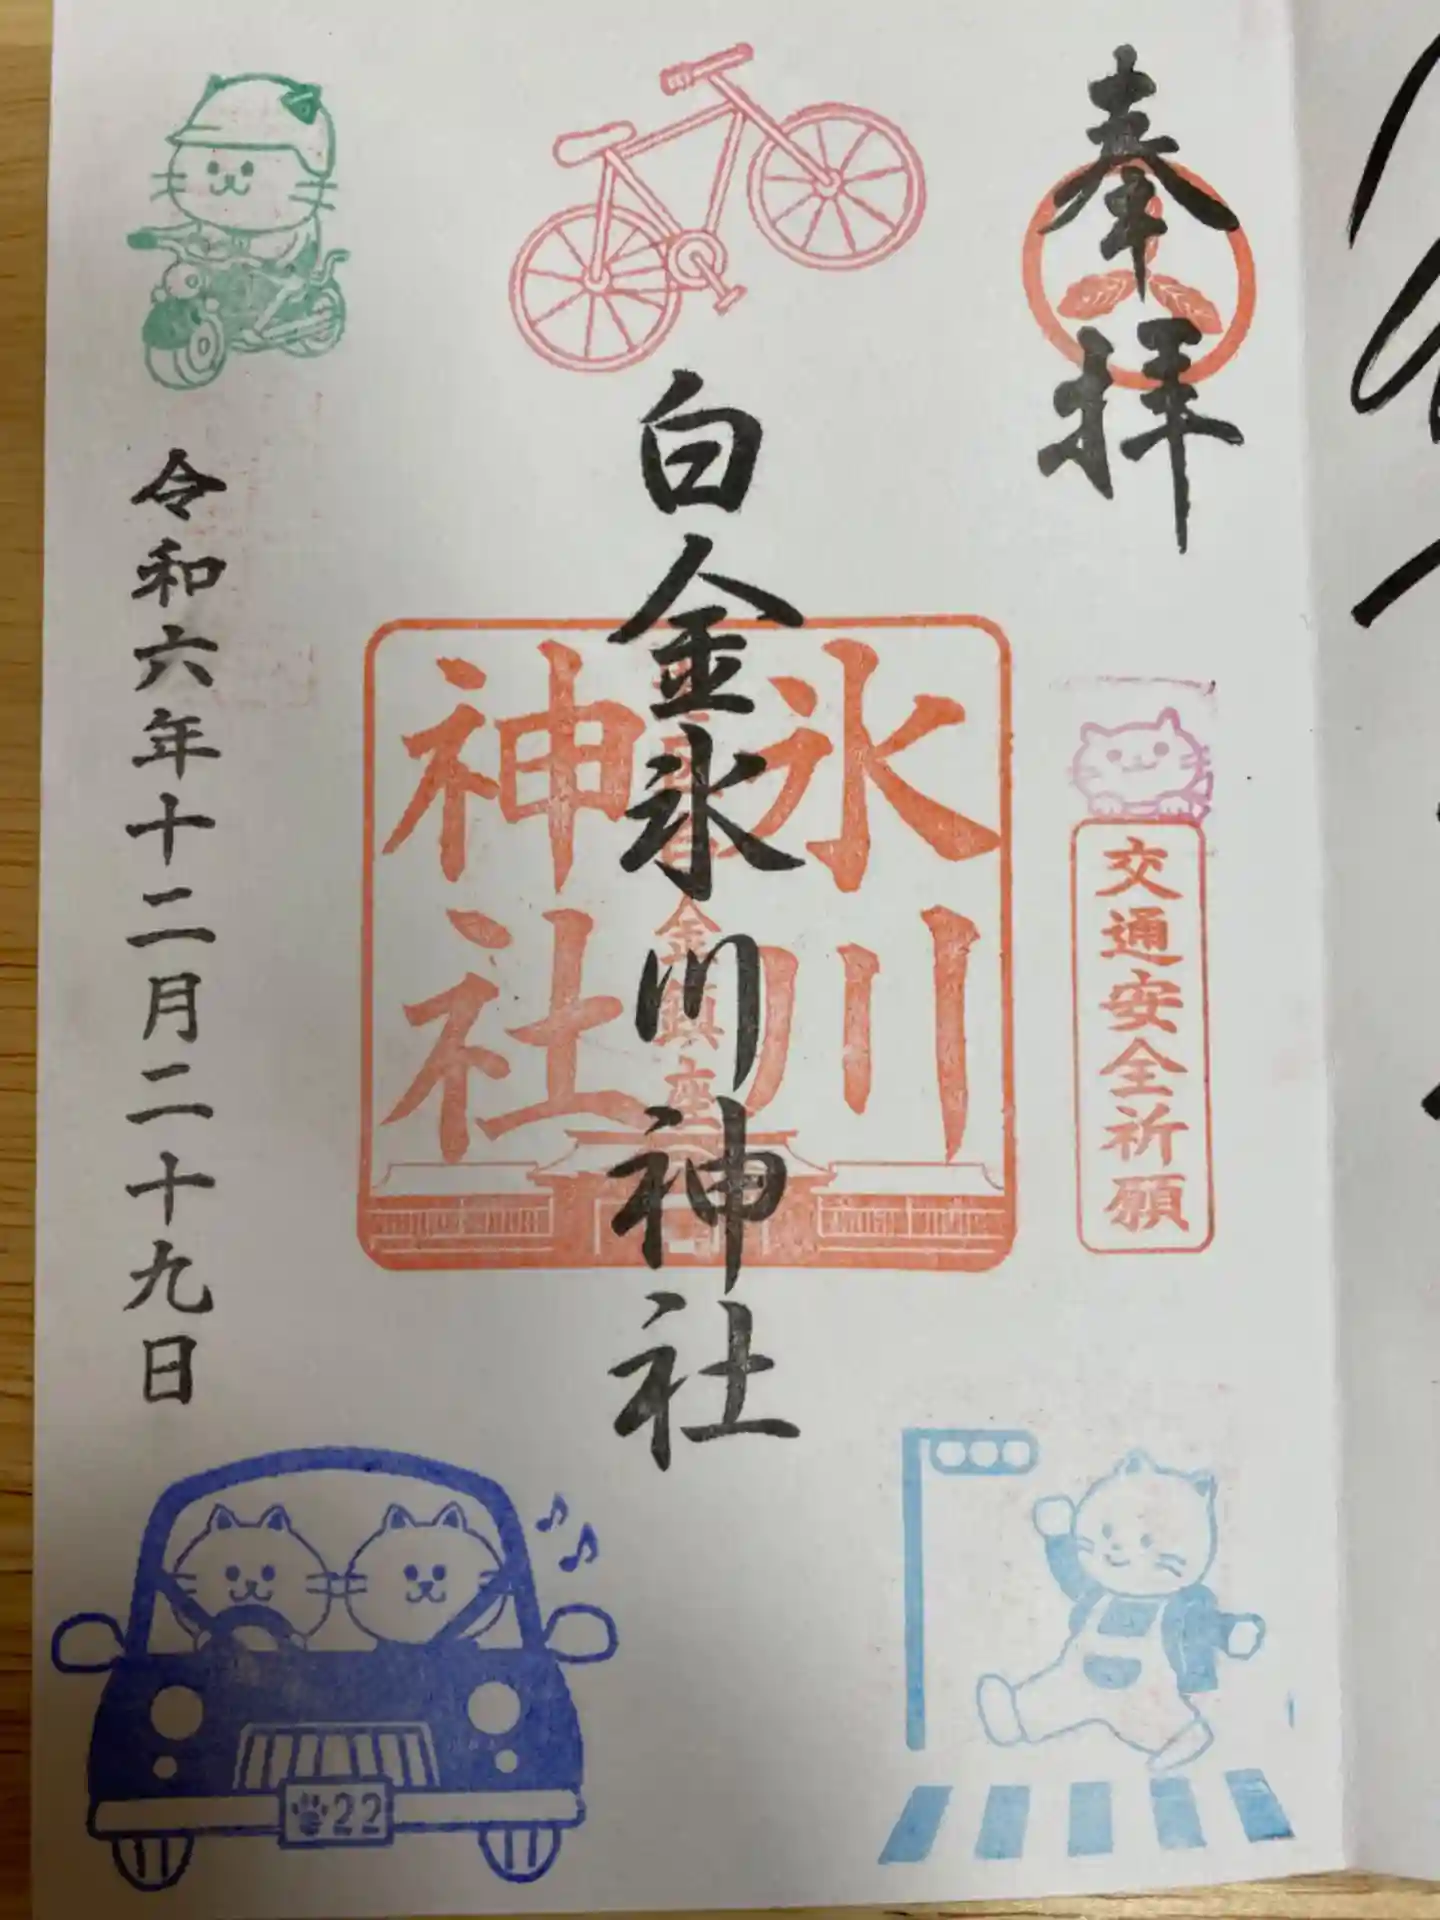 奉拝
交通安全祈願
白金氷川神社
氷川
神社
金鎮座
令和六年十二月二十九日
22